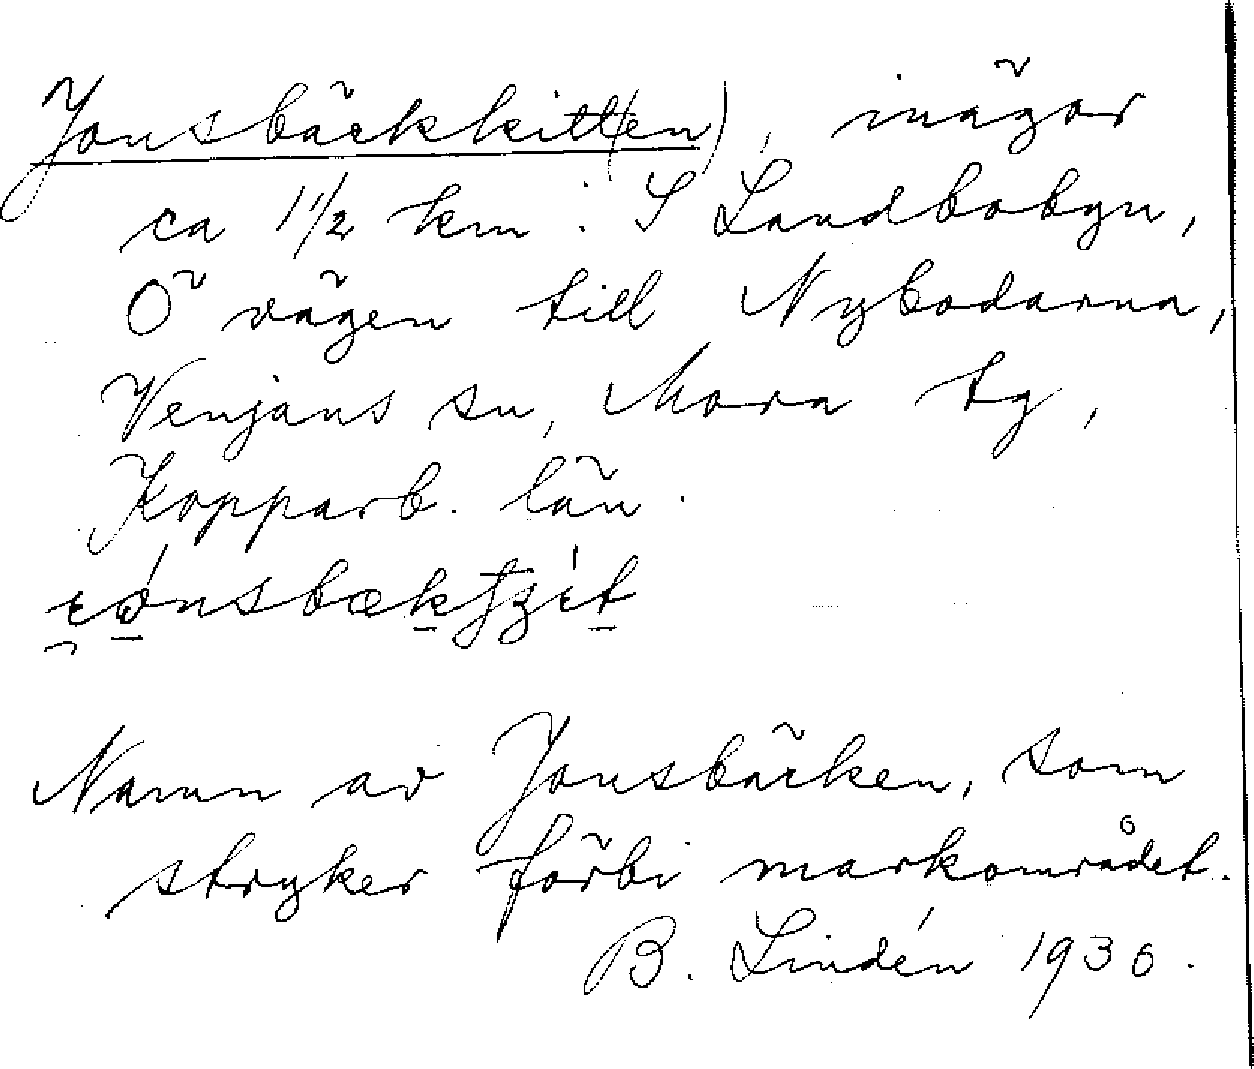 Jonsbäckkitt(en), inägor
ca 1 1/2 km. S Landbobyn,
Ö vägen till Nybodarna,
Venjans sn, Mora tg,
Kopparb. län.
Namn av Jonsbäcken, som
stryker förbi markområdet.
B. Lindén 1936.